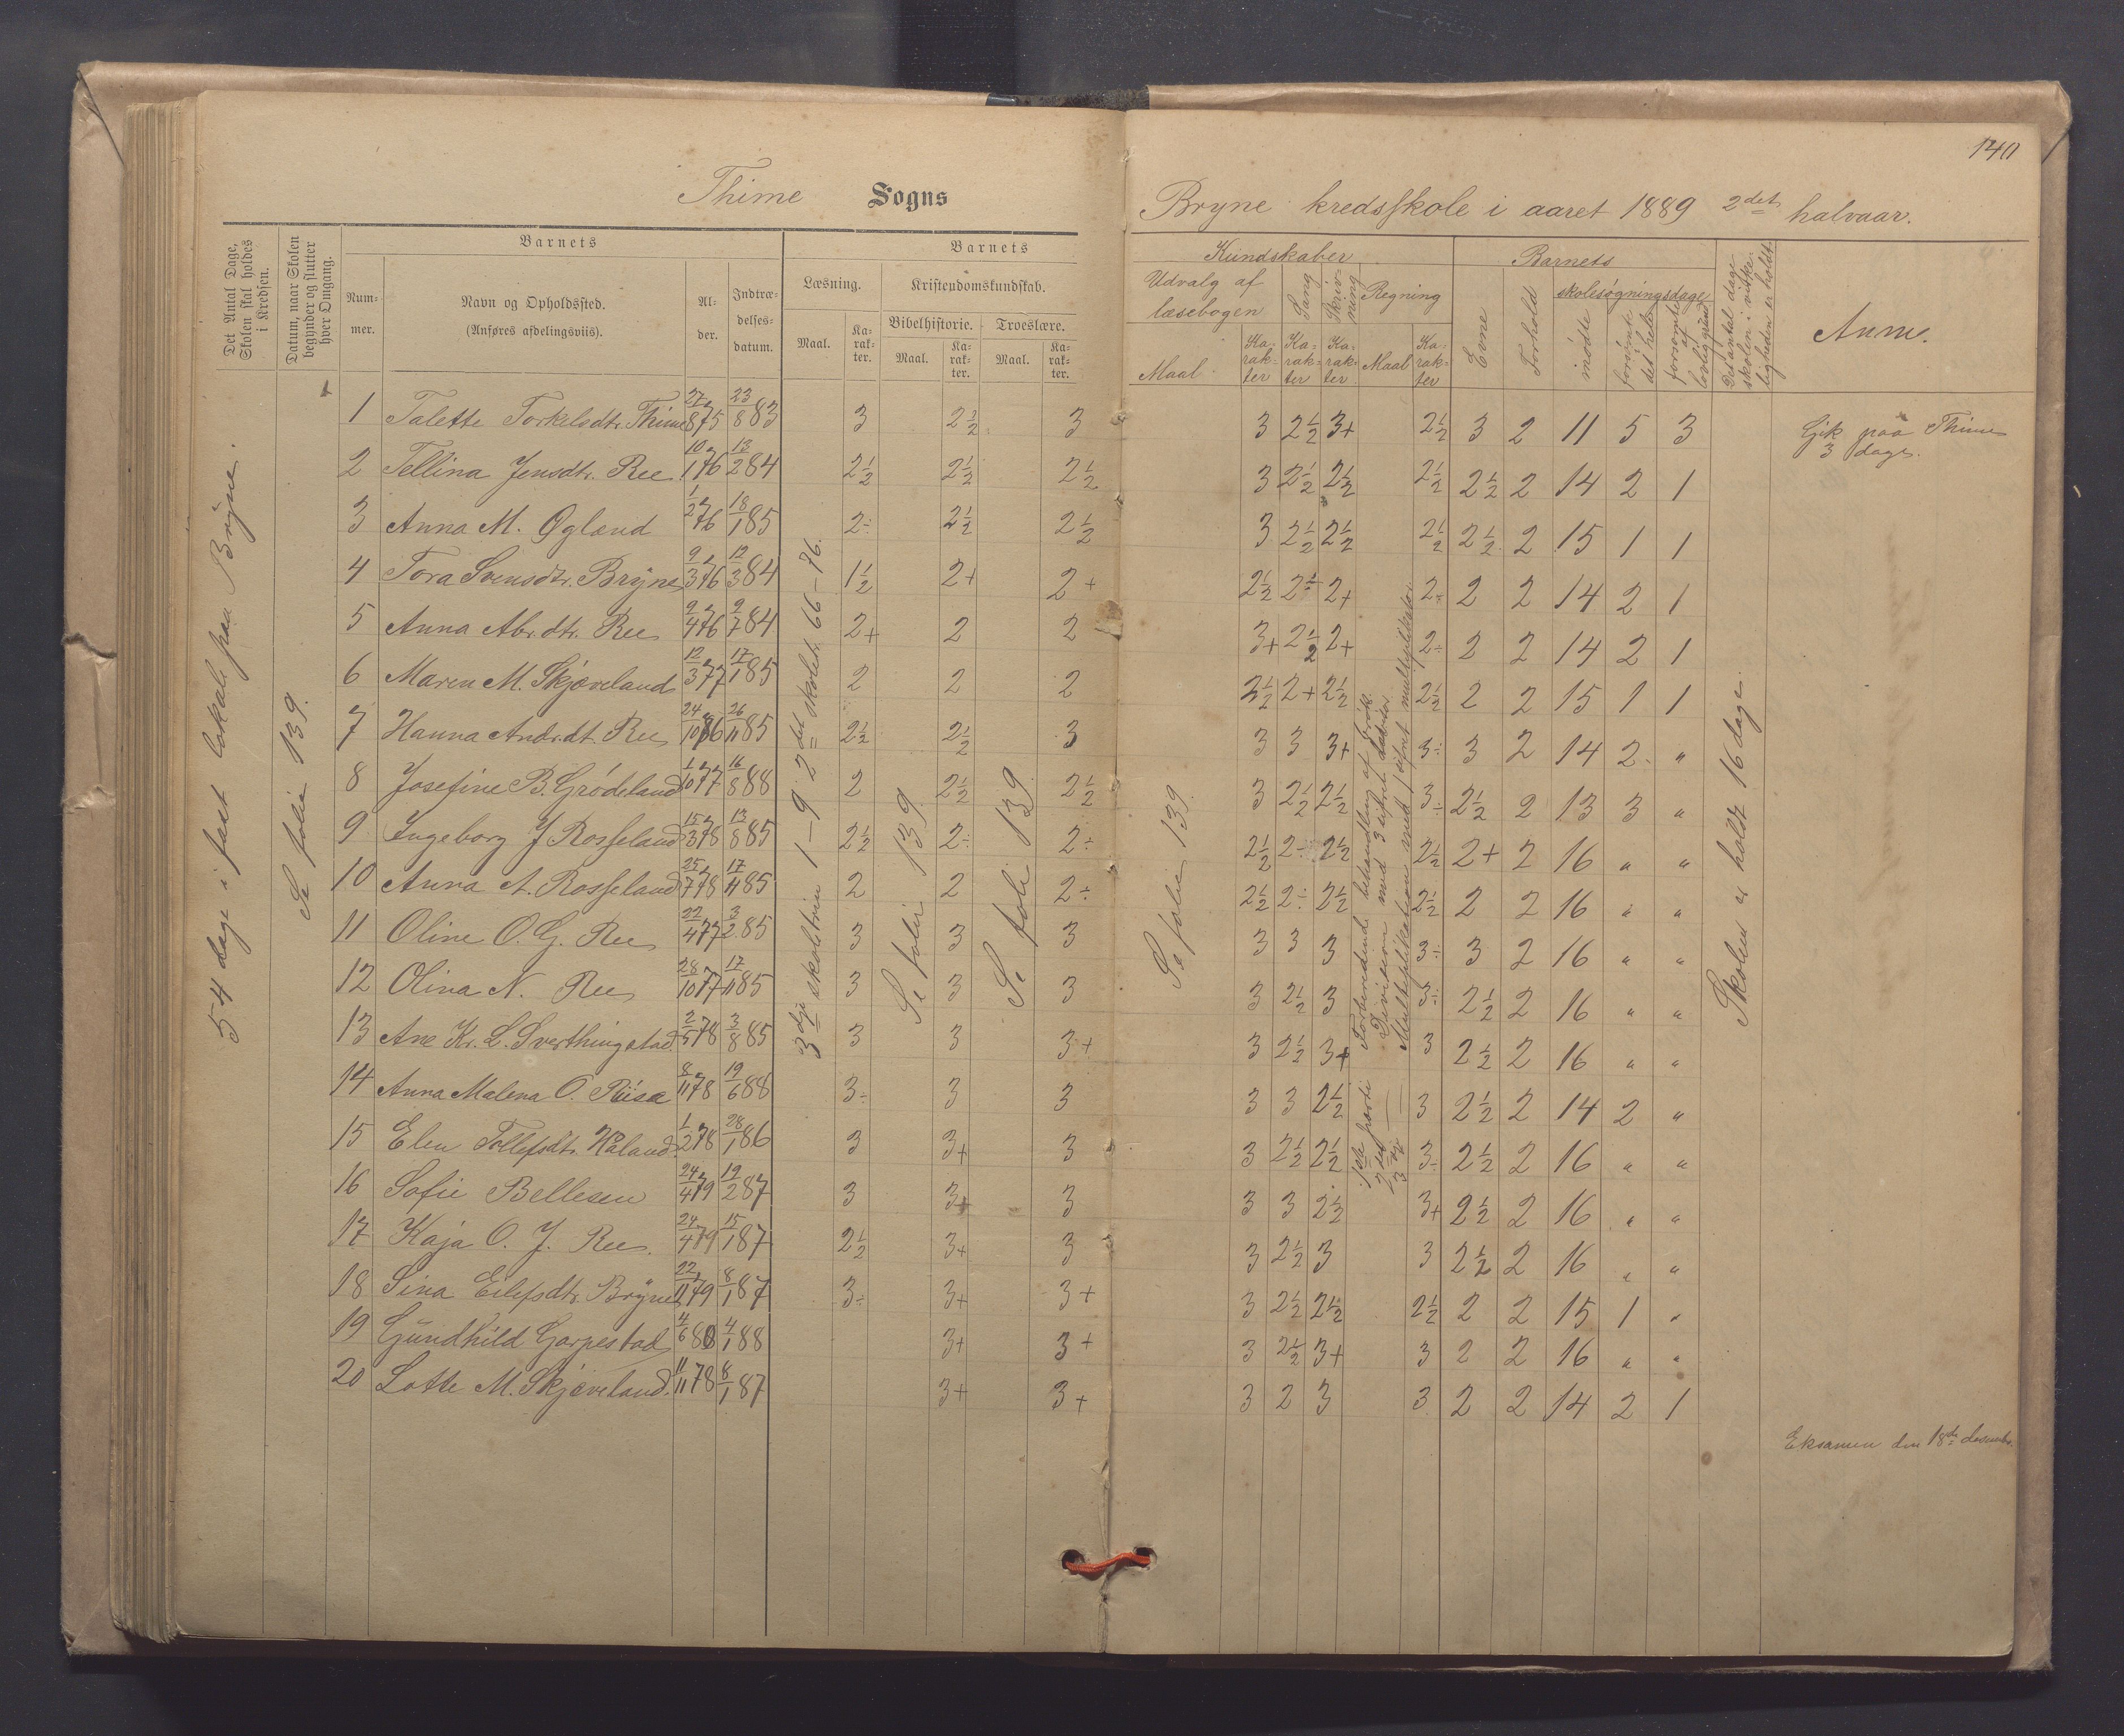 140
Thime Sogns
Bryne kredsskole i aaret 1889 2det halvaar.
Det Antal Dage, Skolen skal holdes i Kredsen.
Datum, naar Skolen begynder og slutter hver Omgang.
Barnets
Nummer.
Navn og Opholdssted.
(Anføres afdelingsviis).
Alder.
Indtrædelsesdatum.
Barnets
Læsning.
Maal.
Karakter.
Kristendomskundskab.
Bibelhistorie.
Maal.
Karakter.
Troeslære.
Maal.
Karakter.
Kundskaber
Udvalg af læsebogen
Maal
Karakter
Sang
Karakter
Skrivning
Karakter
Regning
Maal
Karakter
Barnets
Evne
Forhold
skolesøgningsdage
mødte
forsømte det hele
forsømte af lovlig grund
Det antal dage skolen i virkeligheden er holdt
Anm.
54 dage i fast lokale paa Bryne.
Se folio 139.
3dje skoletrin 1-9 2det skoletr. 66-76.
Se folio 139
Se folio 139
Se folio 139
1ste parti Forberedende behandling af brøk.
2det — Division med 3 cifret divisor
3dje — Multiplikation med 1 cifret multiplikator.
Skolen er holdt 16 dage.
1 Talette Torkelsdtr. Thime 27/8 75 23/8 83 3 2½ 3 3 2½ 3+ 2½ 3 2 11 5 3 Gik paa Thime
3 dage.
2 Tellina Jensdtr. Ree 10/1 76 13/2 84 2½ 2½ 2½ 3 2½ 2½ 2½ 2½ 2 14 2 1
3 Anna M. Øgland 1/2 76 18/1 85 2÷ 2½ 2½ 3 2½ 2½ 2½ 2½ 2 15 1 1
4 Tora Svensdtr. Bryne 9/3 76 12/3 84 1½ 2+ 2+ 2½ 2÷ 2+ 2÷ 2 2 14 2 1
5 Anna Abr.dtr. Ree 9/4 76 9/7 84 2+ 2 2 3+ 2½ 2+ 2÷ 2 2 14 2 1
6 Maren M. Skjæveland 12/3 77 17/1 85 2 2 2 2½ 2+ 2½ 2½ 2 2 15 1 1
7 Hanna Andr.dt. Ree 24/10 76 26/11 85 2½ 2½ 3 3 3 3+ 3÷ 3 2 14 2 "
8 Josefine B. Grødeland 1/10 77 16/8 88 2 2½ 2½ 3 2½ 2½ 3÷ 2½ 2 13 3 "
9 Ingeborg J Rosseland 15/3 78 13/8 85 2½ 2÷ 2÷ 2½ 2÷ 2½ 2½ 2+ 2 16 " "
10 Anna A. Rosseland 25/7 78 17/11 85 2 2 2÷ 2½ 2÷ 2½ 2½ 2 2 16 " "
11 Oline O. G. Ree 22/4 77 3/2 85 3 3 3 3 3 3 3÷ 3 2 16 " "
12 Olina N. Ree 28/10 77 17/11 85 3 3 3 3 2½ 3 3÷ 2½ 2 16 " "
13 Ane Kr. L. Sverthingstad 2/5 78 3/8 85 3 3 3+ 3 2½ 3+ 3 2½ 2 16 " "
14 Anna Malena O. Riisa 8/11 78 19/6 88 3÷ 3 3 3 3 2½ 3 2½ 2 14 2 "
15 Elen Tollefsdtr. Haaland 1/2 78 28/1 86 3 3+ 3 3 2½ 2½ 3÷ 2½ 2 16 " "
16 Sofie Bellesen 24/4 79 19/2 87 3 3+ 3 3 3 2½ 3+ 2½ 2 16 " "
17 Kaja O. J. Ree. 24/4 79 15/1 87 2½ 3+ 3 3 2½ 3 3 2½ 2 16 " "
18 Sina Eilefsdtr. Bryne 22/11 79 8/1 87 3÷ 3+ 3+ 3 2½ 2½ 2½ 2 2 15 1 "
19 Gundhild Garpestad 4/6 80 4/1 88 3+ 3+ 3 2½ 3+ 3 2 2 16 " "
20 Lotte M. Skjæveland. 11/11 78 8/1 87 3+ 3+ 3 2 3 3 2 2 14 2 1
Eksamen den 18de desember.